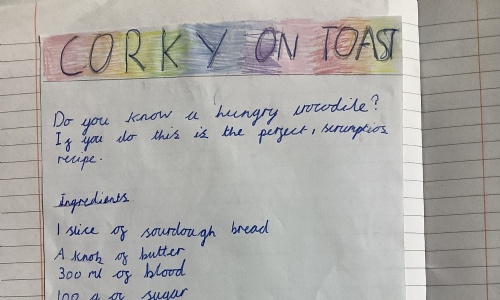 CORKY ON TOAST
Do you know a hungry crocodile?
If you do this is the perfect, scrumptios
recipe.
Ingredients
1 slice of sourdough bread
A knob of butter
300 ml of blood
100 g of sugar